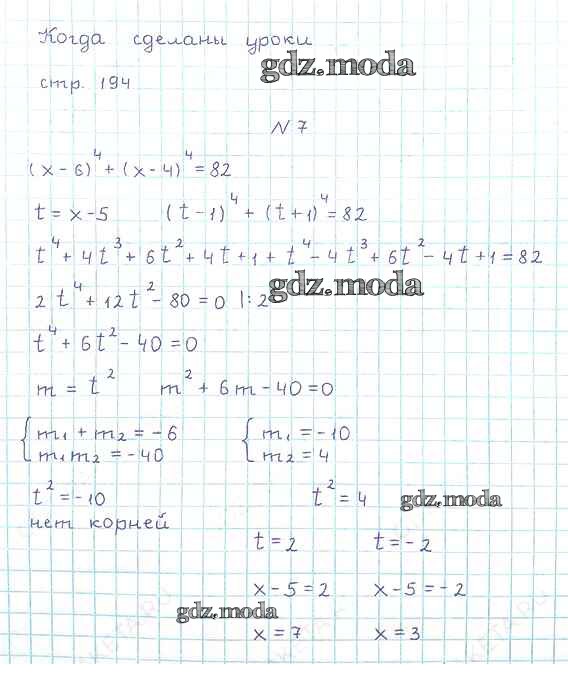 Когда сделаны уроки
gdz.moda
стр. 194
N 7
(x-6)^4 + (x-4)^4 = 82
t = x-5 (t-1)^4 + (t+1)^4 = 82
t^4 + 4t^3 + 6t^2 + 4t + 1 + t^4 - 4t^3 + 6t^2 - 4t + 1 = 82
gdz.moda
2t^4 + 12t^2 - 80 = 0 |:2
t^4 + 6t^2 - 40 = 0
m = t^2 m^2 + 6m - 40 = 0
{ m1 + m2 = -6 { m1 = -10
m1m2 = -40 m2 = 4
t^2 = -10 t^2 = 4 gdz.moda
нет корней
t = 2 t = -2
x-5 = 2 x-5 = -2
gdz.moda
x = 7 x = 3